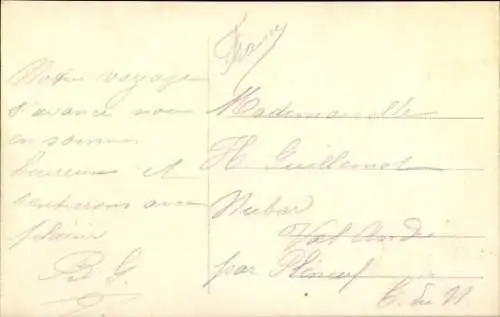 Notre voyage
s'avance nous
en sommes
heureuses et
rentrerons avec
plaisir
B. G.
Mademoiselle
H. Guillemot
Val André
par Pléneuf
C. du N